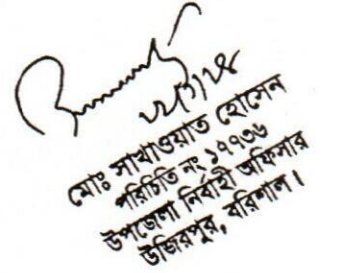 মোঃ সাখাওয়াত হোসেন
পরিচিতি নং ১৭৭৩৬
উপজেলা নির্বাহী অফিসার
উজিরপুর, বরিশাল।